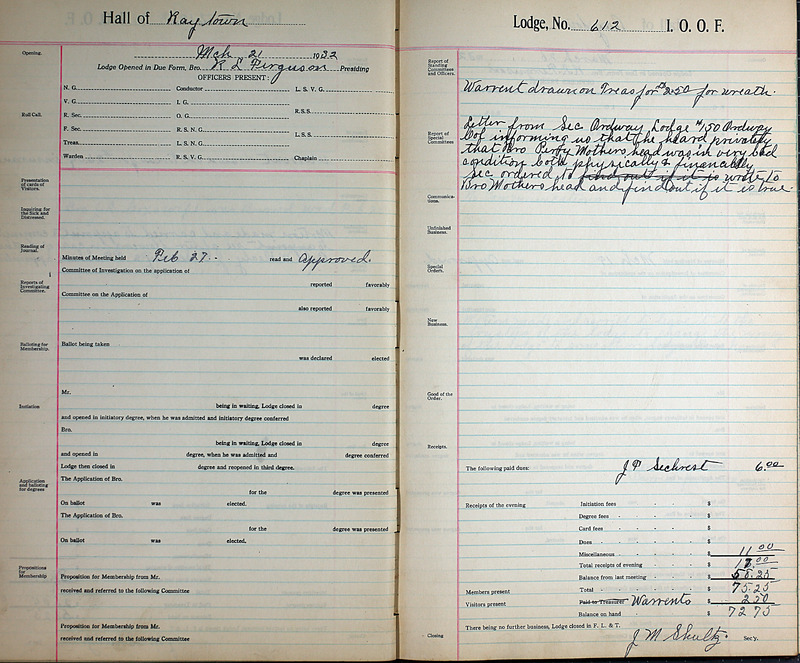 Hall of Raytown
Opening.
Mch 21 1932
Lodge Opened in Due Form, Bro. R L Ferguson Presiding
OFFICERS PRESENT:
Roll Call.
N. G. Conductor L. S. V. G.
V. G. I. G. R.S.S.
R. Sec. O. G.
F. Sec. R. S. N. G. L. S. S.
Treas. L. S. N. G.
Warden R. S. V. G. Chaplain
Presentation of cards of Visitors.
Inquiring for the Sick and Distressed.
Reading of Journal.
Minutes of Meeting held Feb 27 read and approved.
Committee of Investigation on the application of
Reports of Investigating Committee.
reported favorably
Committee on the Application of
also reported favorably
Balloting for Membership.
Ballot being taken
was declared elected
Mr.
Initiation
being in waiting, Lodge closed in degree
and opened in initiatory degree, when he was admitted and initiatory degree conferred
Bro.
being in waiting, Lodge closed in degree
and opened in degree, when he was admitted and degree conferred
Lodge then closed in degree and reopened in third degree.
Application and balloting for degrees
The Application of Bro.
for the degree was presented
On ballot was elected.
The Application of Bro.
for the degree was presented
On ballot was elected.
Propositions for Membership
Proposition for Membership from Mr.
received and referred to the following Committee
Proposition for Membership from Mr.
received and referred to the following Committee
Lodge, No. 612 I. O. O. F.
Report of Standing Committees and Officers.
Warrent drawn on Treas for $2.50 for wreath.
Report of Special Committees
Letter from Sec Ordway Lodge #150 Ordway
Col informing us that he heard privately
that Bro Percy Mothershead was in very bad
condition both physically & finanically
Sec ordered to find out if it is wrote to
Bro Mothershead and find out if it is true
Communications.
Unfinished Business.
Special Orders.
New Business.
Good of the Order.
Receipts.
The following paid dues: J P Sechrest 6.00
Receipts of the evening Initiation fees $
Degree fees $
Card fees $
Dues $
Miscellaneous $ 11 00
Total receipts of evening $ 17.00
Balance from last meeting $ 58.25
Members present Total $ 75.25
Visitors present Paid to Treasurer Warrents $ 2 50
Balance on hand $ 72 75
There being no further business, Lodge closed in F. L. & T.
Closing
J M Shultz. Sec'y.